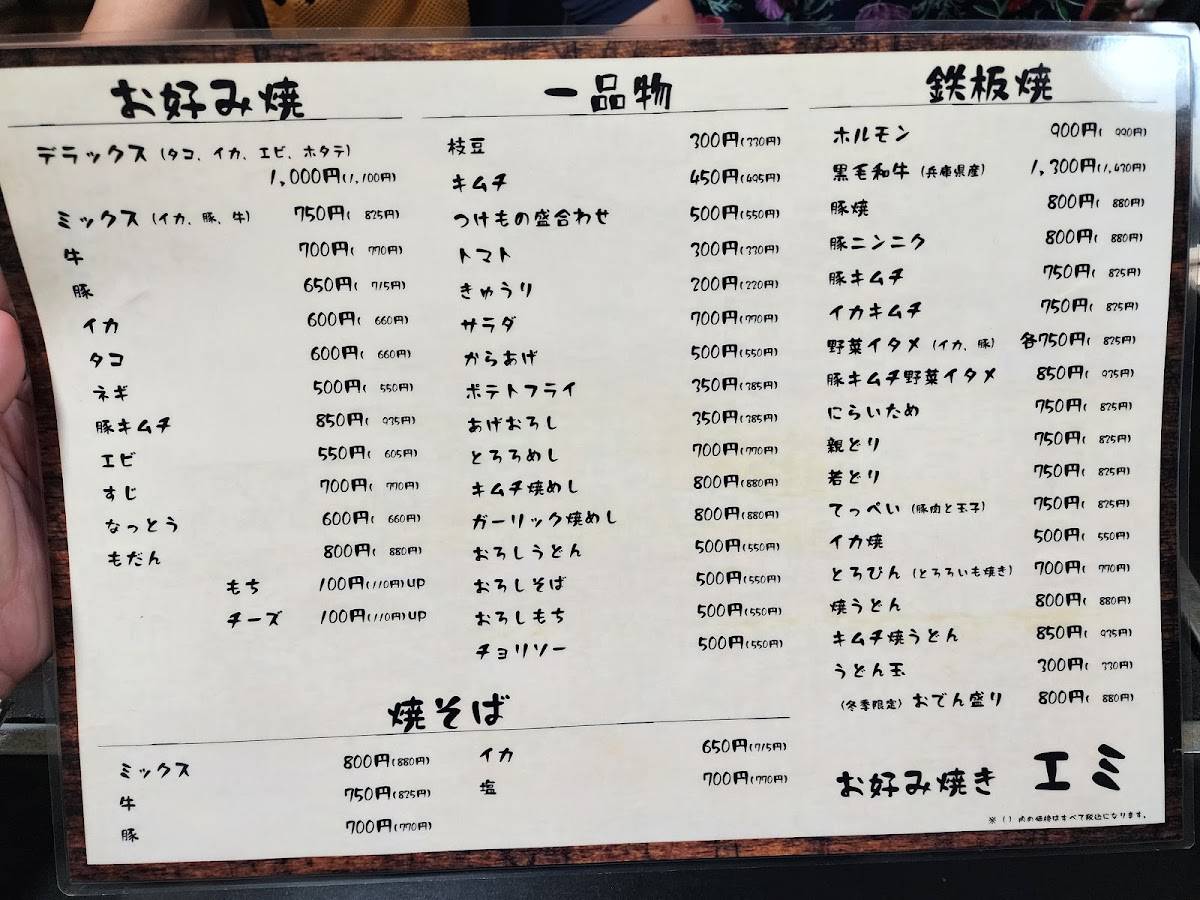 お好み焼
デラックス (タコ、イカ、エビ、ホタテ)
1,000円(1,100円)
ミックス (イカ、豚、牛) 750円( 825円)
牛 700円( 770円)
豚 650円( 715円)
イカ 600円( 660円)
タコ 600円( 660円)
ネギ 500円( 550円)
豚キムチ 850円( 935円)
エビ 550円( 605円)
すじ 700円( 770円)
なっとう 600円( 660円)
もだん 800円( 880円)
もち 100円(110円)up
チーズ 100円(110円)up
一品物
枝豆 300円(330円)
キムチ 450円(495円)
つけもの盛合わせ 500円(550円)
トマト 300円(330円)
きゅうり 200円(220円)
サラダ 700円(770円)
からあげ 500円(550円)
ポテトフライ 350円(385円)
あげおろし 350円(385円)
とろろめし 700円(770円)
キムチ焼めし 800円(880円)
ガーリック焼めし 800円(880円)
おろしうどん 500円(550円)
おろしそば 500円(550円)
おろしもち 500円(550円)
チョリソー 500円(550円)
焼そば
ミックス 800円(880円)
牛 750円(825円)
豚 700円(770円)
イカ 650円(715円)
塩 700円(770円)
鉄板焼
ホルモン 900円( 990円)
黒毛和牛 (兵庫県産) 1,300円(1,430円)
豚焼 800円( 880円)
豚ニンニク 800円( 880円)
豚キムチ 750円( 825円)
イカキムチ 750円( 825円)
野菜イタメ (イカ、豚) 各750円( 825円)
豚キムチ野菜イタメ 850円( 935円)
にらいため 750円( 825円)
親どり 750円( 825円)
若どり 750円( 825円)
てっぺい (豚肉と玉子) 750円( 825円)
イカ焼 500円( 550円)
とろぴん (とろろいも焼き) 700円( 770円)
焼うどん 800円( 880円)
キムチ焼うどん 850円( 935円)
うどん玉 300円( 330円)
(冬季限定) おでん盛り 800円( 880円)
お好み焼き エミ
※ ( ) 内の価格はすべて税込になります。